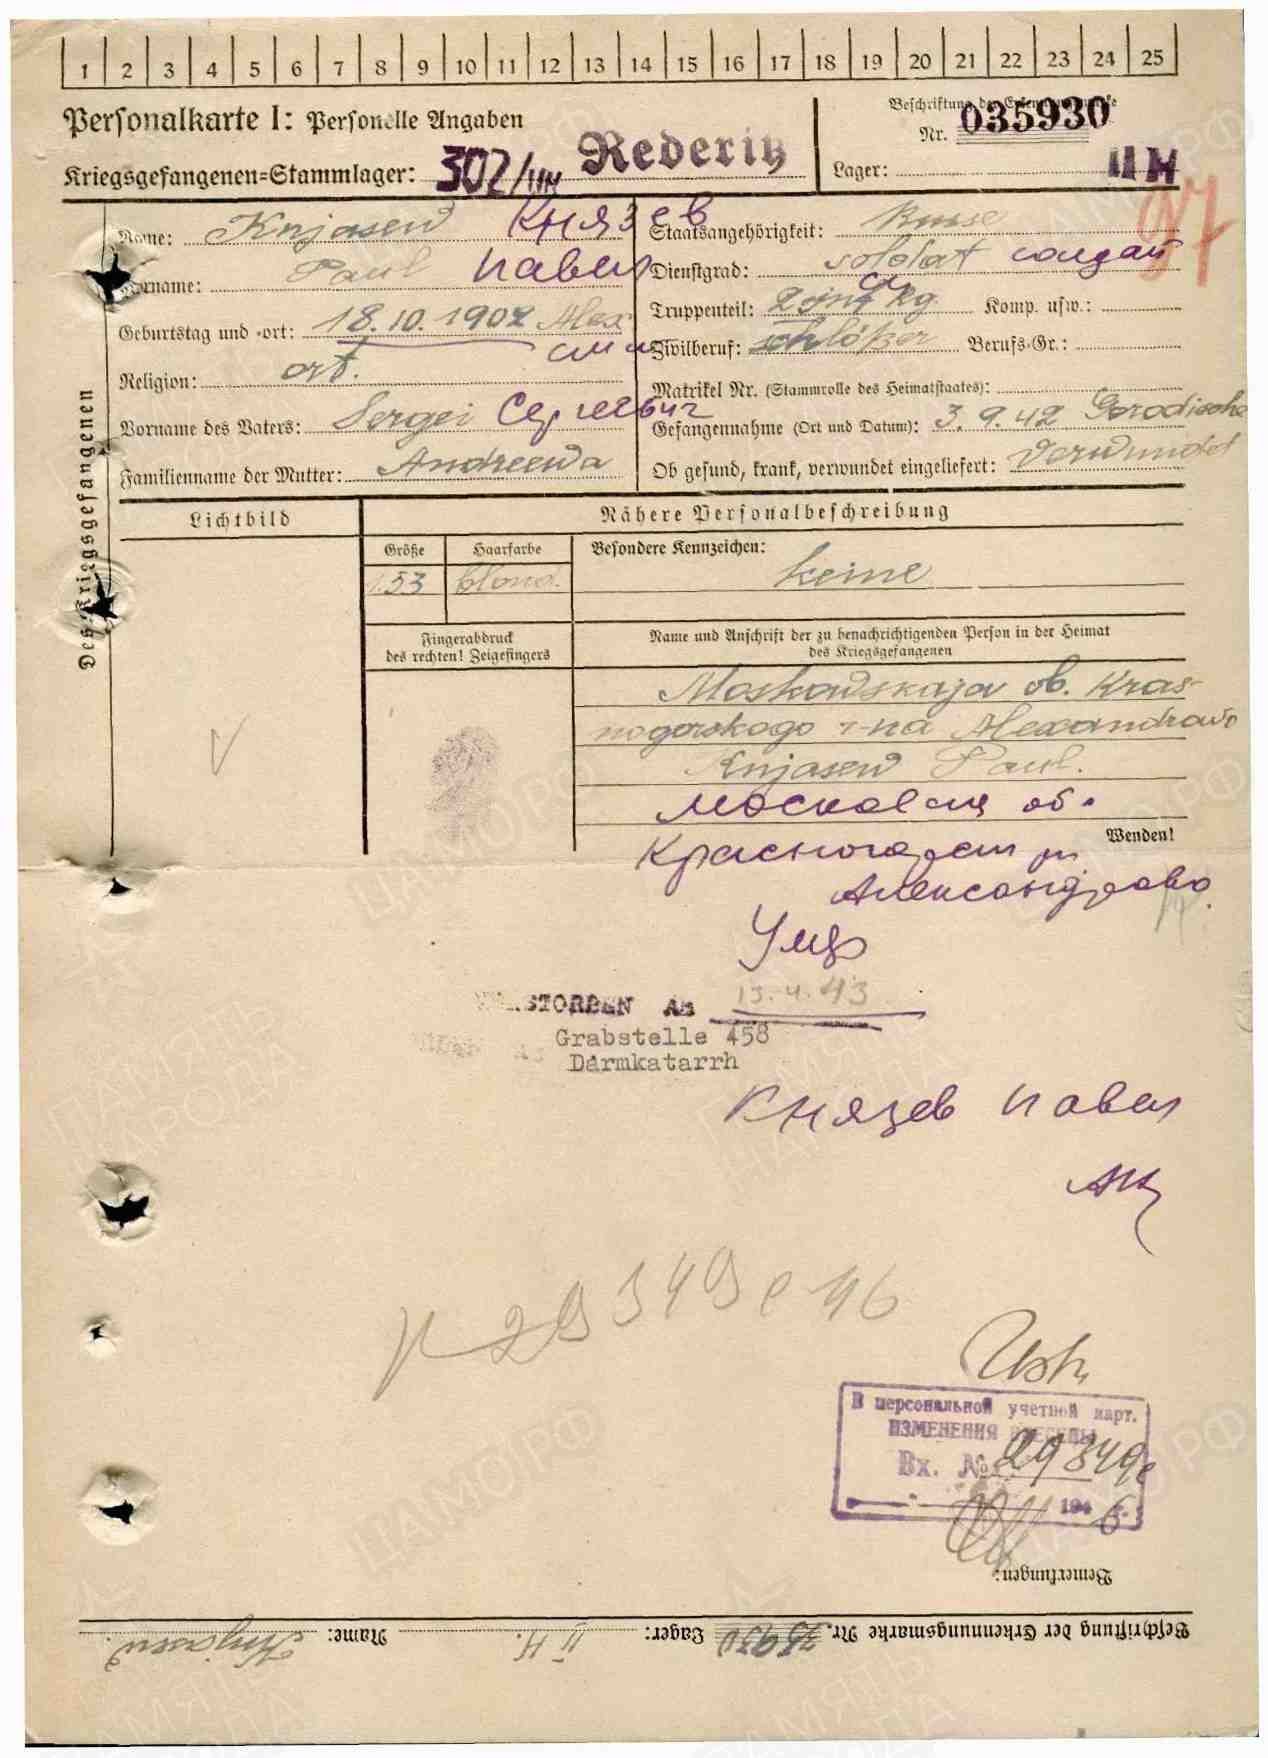 1 2 3 4 5 6 7 8 9 10 11 12 13 14 15 16 17 18 19 20 21 22 23 24 25
Personalkarte I: Personelle Angaben
Beschriftung der Erkennungsmarke
Nr. 035930
Kriegsgefangenen=Stammlager: 302/IIH Rederitz
Lager: II H
97
Des Kriegsgefangenen
Name: Knjasew Князев
Vorname: Paul Павел
Geburtstag und -ort: 18.10.1902 Alex
Religion: ort.
Vorname des Vaters: Sergei Сергеевич
Familienname der Mutter: Andreewa
Staatsangehörigkeit: Russe
Dienstgrad: soldat солдат
Truppenteil: Komp. usw.:
Zivilberuf: schlößer Berufs-Gr.:
Matrikel Nr. (Stammrolle des Heimatstaates):
Gefangennahme (Ort und Datum): 3.9.42 Gorodische
Ob gesund, krank, verwundet eingeliefert: Verwundet
Lichtbild
Nähere Personalbeschreibung
Größe Haarfarbe Besondere Kennzeichen:
1.53 blond. keine
Fingerabdruck
des rechten! Zeigefingers
Name und Anschrift der zu benachrichtigenden Person in der Heimat
des Kriegsgefangenen
Moskowskaja ob. Kras-
nogorskogo r-na Alexandrowo
Knjasew Paul.
Московск об.
Wenden!
Красногорск рн
Александрово
Умер
VERSTORBEN AM 13.4.43
Grabstelle 458
Darmkatarrh
Князев Павел
29349с 46
В персональной учетной карт.
ИЗМЕНЕНИЯ ВНЕСЕНЫ
Вх. № 29349с
194 6
Bemerkungen:
Beschriftung der Erkennungsmarke Nr. 35930 Lager: II H. Name: Knjasew
ПАМЯТЬ НАРОДА
ЦАМО.РФ